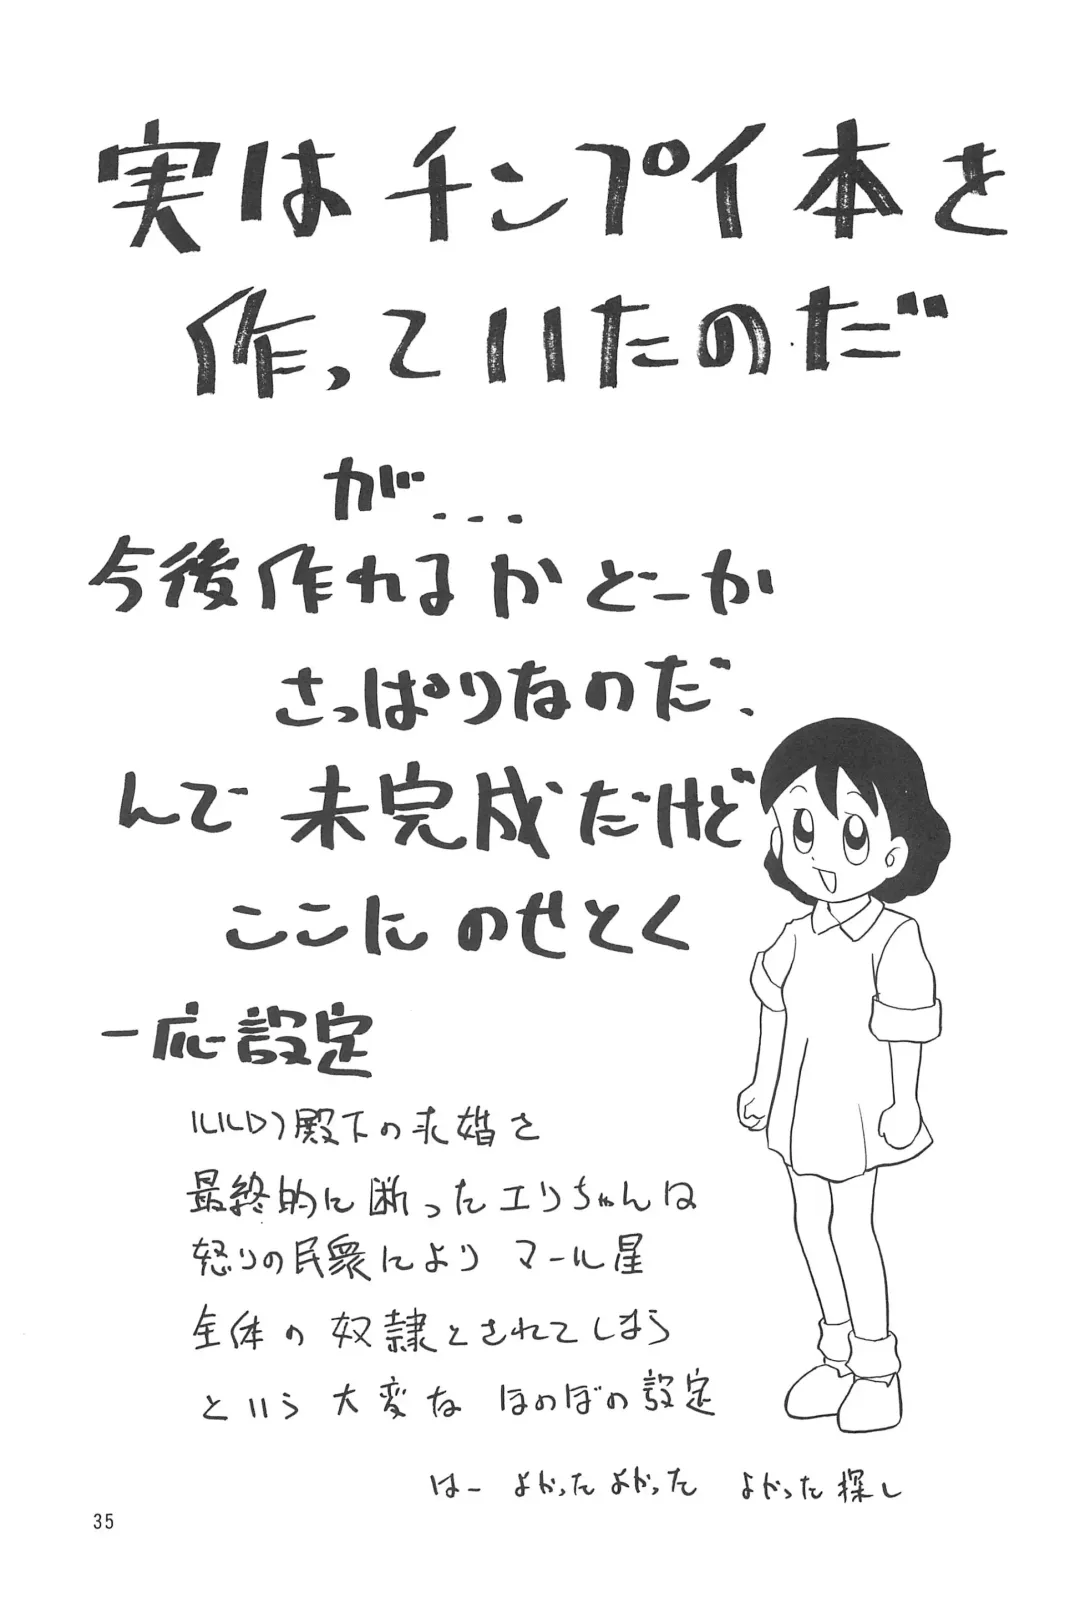 実はチンプイ本を
作っていたのだ
が...
今後作れるかどーか
さっぱりなのだ.
んで 未完成だけど
ここに のせとく
一応設定
ルルロフ殿下の求婚を
最終的に断ったエリちゃんは
怒りの民衆により マール星
全体の奴隷とされてしまう
という 大変な ほのぼの設定
はー よかったよかった よかった探し
35